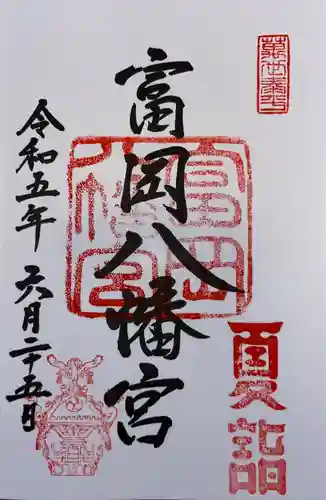 萬世泰平
富岡八幡宮
富岡八幡宮
夏詣
令和五年 六月二十五日